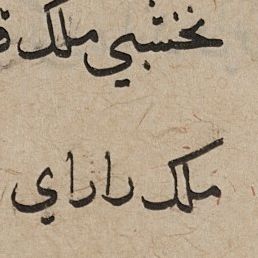 نخشبي ملك
ملك راراي